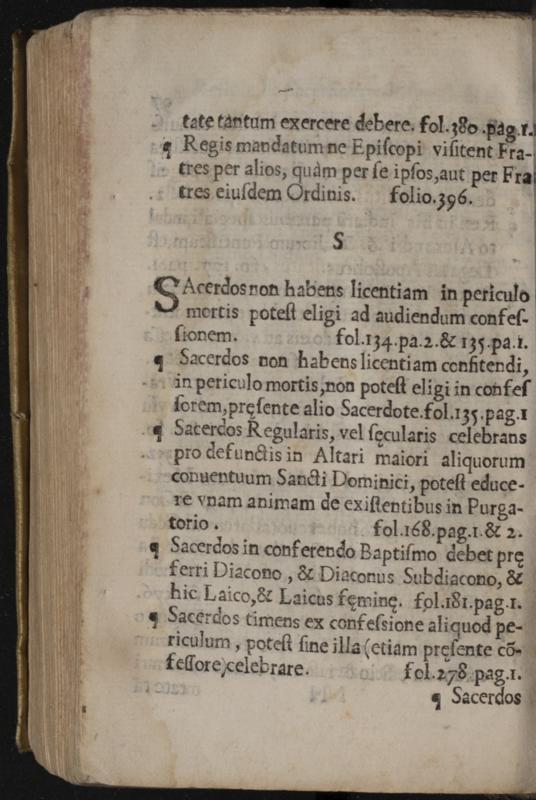 tate tantum exercere debere. fol.380.pag.1.
¶ Regis mandatum ne Episcopi visitent Fra-
tres per alios, quàm per se ipsos, aut per Fra
tres eiusdem Ordinis. folio.396.
S
SAcerdos non habens licentiam in periculo
mortis potest eligi ad audiendum confes-
sionem. fol.134.pa.2.& 135.pa.1.
¶ Sacerdos non habens licentiam confitendi,
in periculo mortis, non potest eligi in confes
sorem, pręsente alio Sacerdote.fol.135.pag.1
¶ Sacerdos Regularis, vel sęcularis celebrans
pro defunctis in Altari maiori aliquorum
conuentuum Sancti Dominici, potest educe-
re vnam animam de existentibus in Purga-
torio. fol.168.pag.1.& 2.
¶ Sacerdos in conferendo Baptismo debet prę
ferri Diacono, & Diaconus Subdiacono, &
hic Laico, & Laicus fęminę. fol.181.pag.1.
¶ Sacerdos timens ex confessione aliquod pe-
riculum, potest sine illa (etiam pręsente cõ-
fessore) celebrare. fol.278.pag.1.
¶ Sacerdos